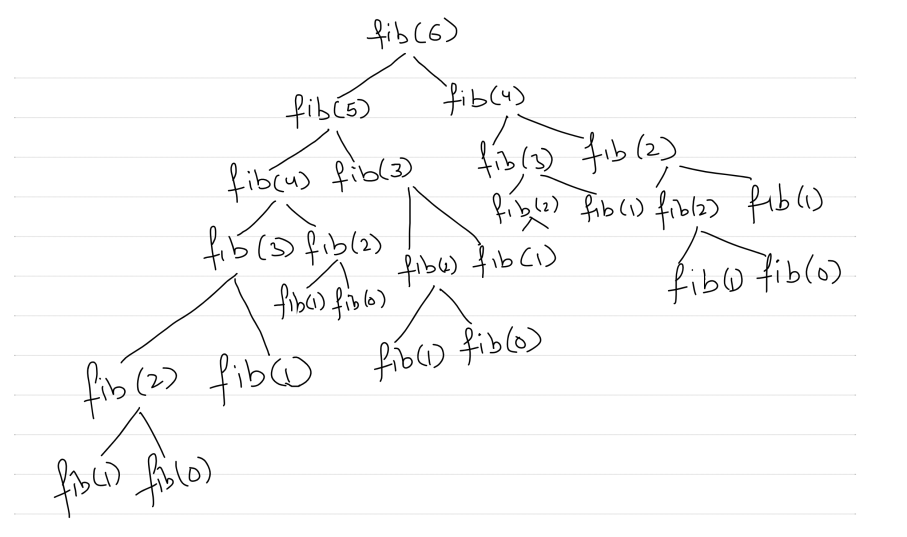 fib(6)
fib(5) fib(4)
fib(4) fib(3) fib(3) fib(2)
fib(2) fib(1) fib(2) fib(1)
fib(3) fib(2) fib(2) fib(1)
fib(1) fib(0) fib(1) fib(0)
fib(2) fib(1) fib(1) fib(0)
fib(1) fib(0)